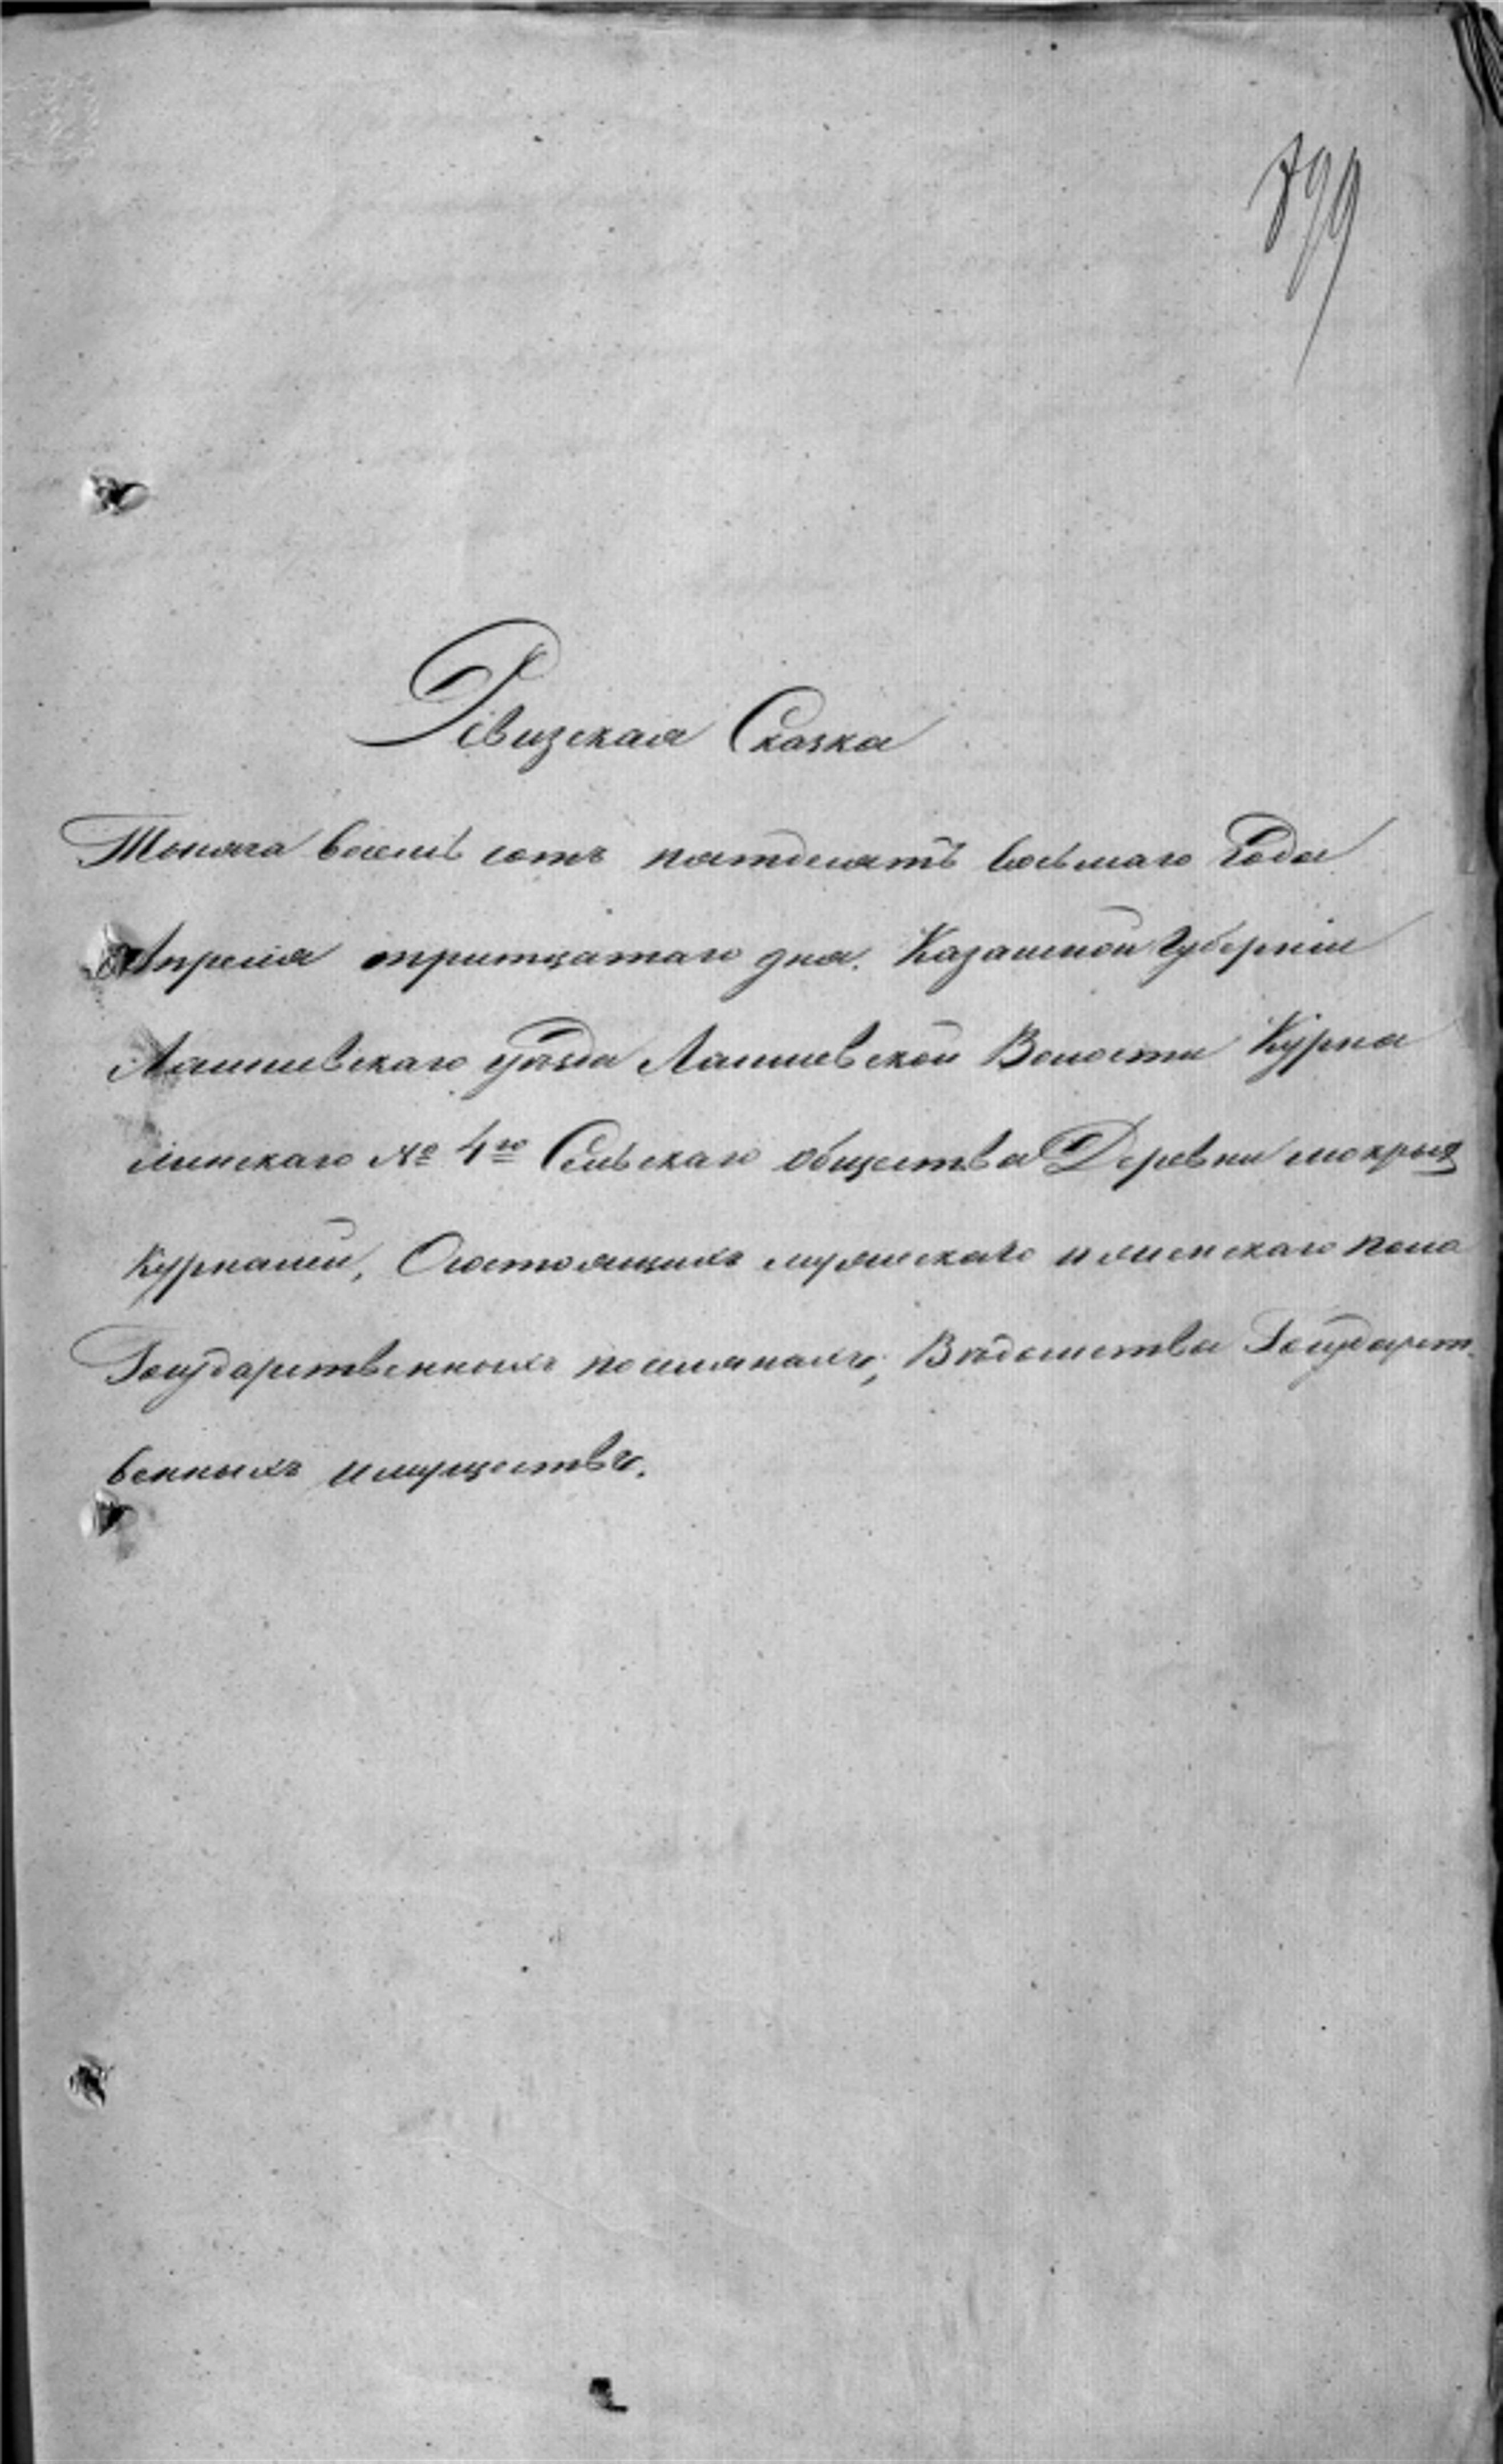 799
Ревизская Сказка
Тысяча восемь сотъ пятдесятъ восьмаго Года
Апреля тритцатаго дня. Казанской Губерніи
Лаишевскаго уѣзда Лаишевской Волости Курна
линскаго № 4го Сельскаго общества Деревни мокрыя
Курнали, Состоящихъ мужескаго и женскаго пола
Государственныхъ поселянахъ, Вѣдомства Государст
венныхъ имуществъ.